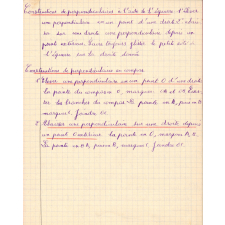 Construction de perpendiculaires à l'aide de l'équerre. Elever
une perpendiculaire en un point d'une droite. Abais-
ser sur une droite une perpendiculaire depuis un
point extérieur. Faire toujours glisser le petit côté de
l'équerre sur la droite donnée.
Construction de perpendiculaires au compas
1 Elever une perpendiculaire en un point O d'une droite
la pointe du compas en O, marquer A et B.
les branches du compas. La pointe en A, puis B
marquer C. joindre OC.
2 Abaisser une perpendiculaire sur une droite depuis
un point extérieur la pointe en O, marquer A, B.
La pointe en A, puis B, marquer C. Joindre OC.